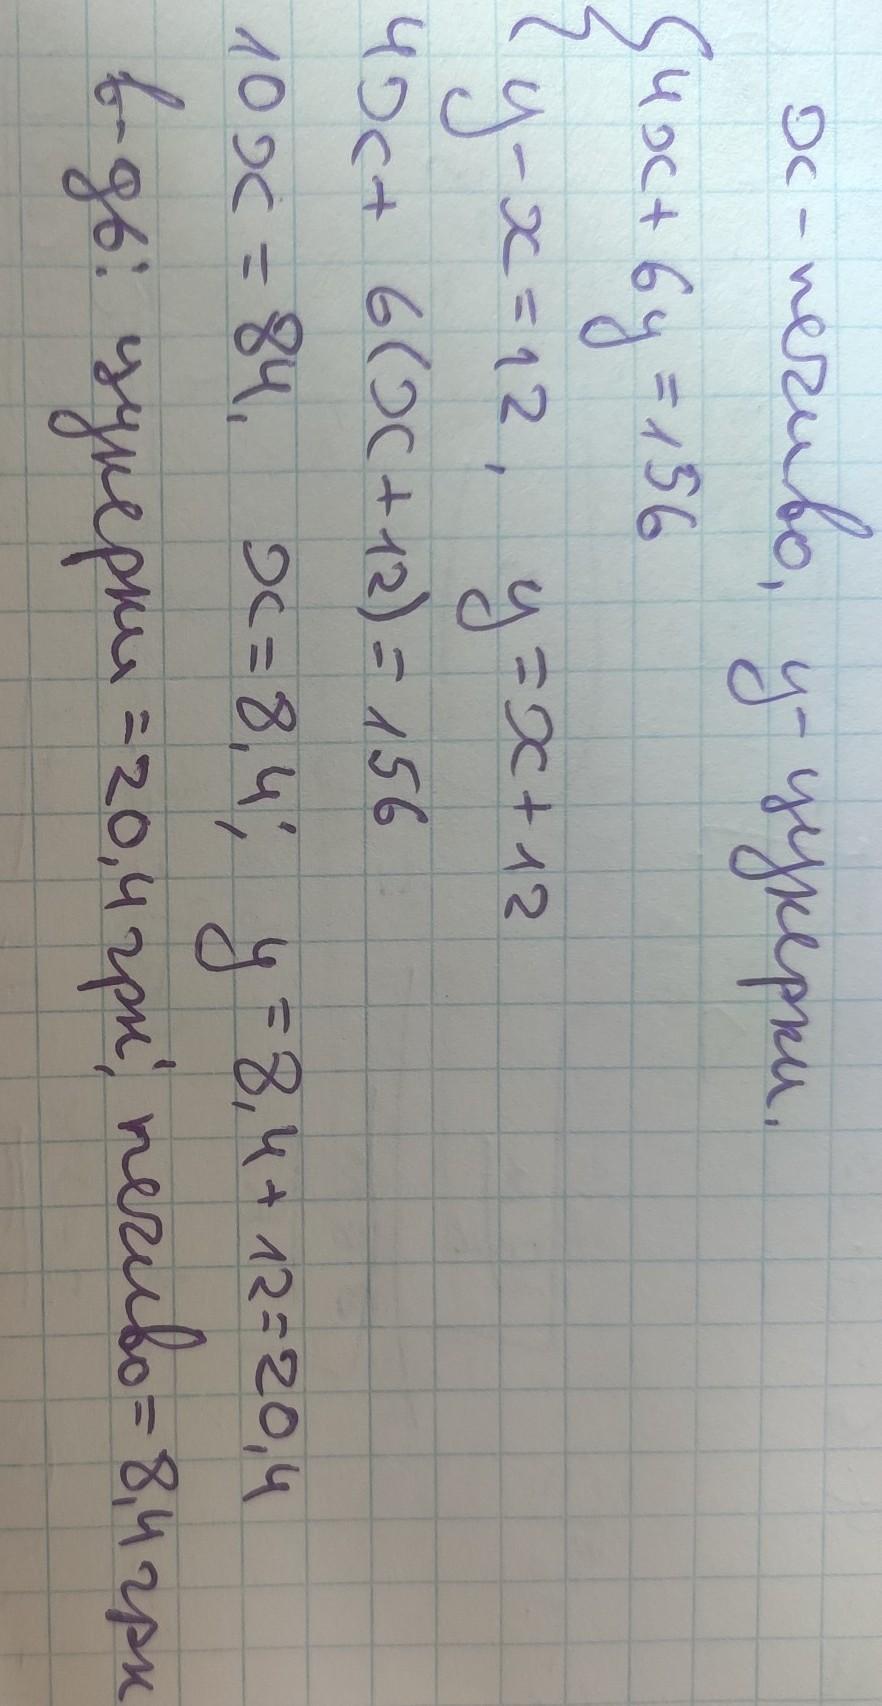 x - печиво, y - цукерки.
{ 4x + 6y = 156
y - x = 12, y = x + 12
4x + 6(x + 12) = 156
10x = 84, x = 8,4; y = 8,4 + 12 = 20,4
в-дь: цукерки = 20,4 грн; печиво = 8,4 грн